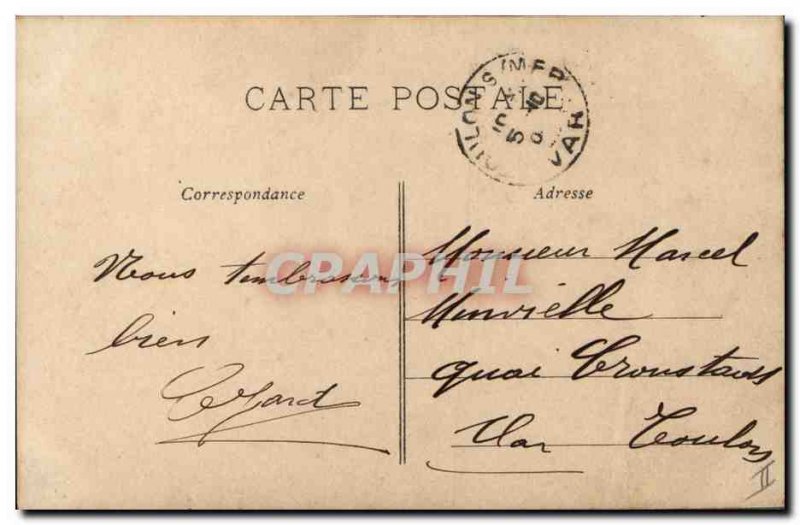 CARTE POSTALE
Correspondance
Adresse
Nous t'embrassons
bien
Monsieur Marcel
Minvielle
quai Cronstadt
Var Toulon
S/MER
VAR
CPARAPHIL
II